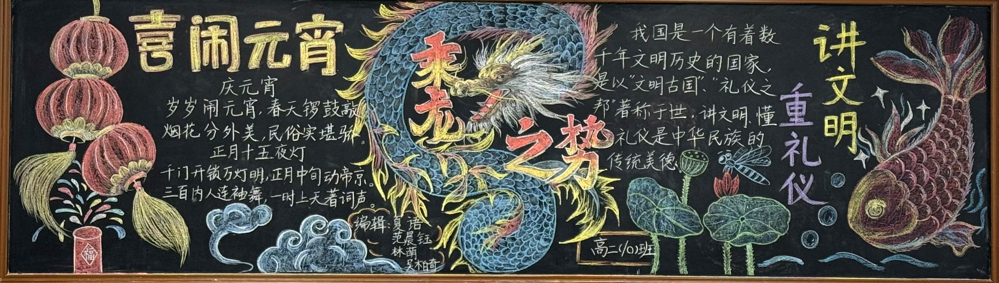 喜闹元宵
庆元宵
岁岁闹元宵,春天锣鼓敲
烟花分外美,民俗实堪骄。
正月十五夜灯
千门开锁万灯明,正月中旬动帝京。
三百内人连袖舞,一时上天著词声。
编辑:夏语
范晨钰
林萌
福
乘龙
之势
我国是一个有着数
千年文明历史的国家,
是以"文明古国"、礼仪之
邦"著称于世,讲文明,懂
礼仪是中华民族的
传统美德
高二(10)班
讲文明
重礼仪